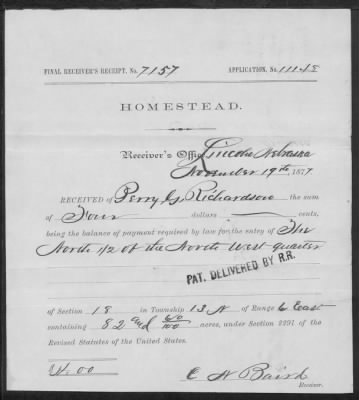 FINAL RECEIVER'S RECEIPT, No. 7157 APPLICATION, No. 11148
HOMESTEAD.
Receiver's Office, Lincoln Nebraska
November 19th, 1877
RECEIVED of Perry G. Richardson the sum
of Four dollars cents,
being the balance of payment required by law for the entry of The
North 1/2 of the North West quarter
PAT. DELIVERED BY R.R.
of Section 18 in Township 13 N of Range 6 East
containing 82 and 60/100 acres, under Section 2291 of the
Revised Statutes of the United States.
$4.00
C N Baird
Receiver.